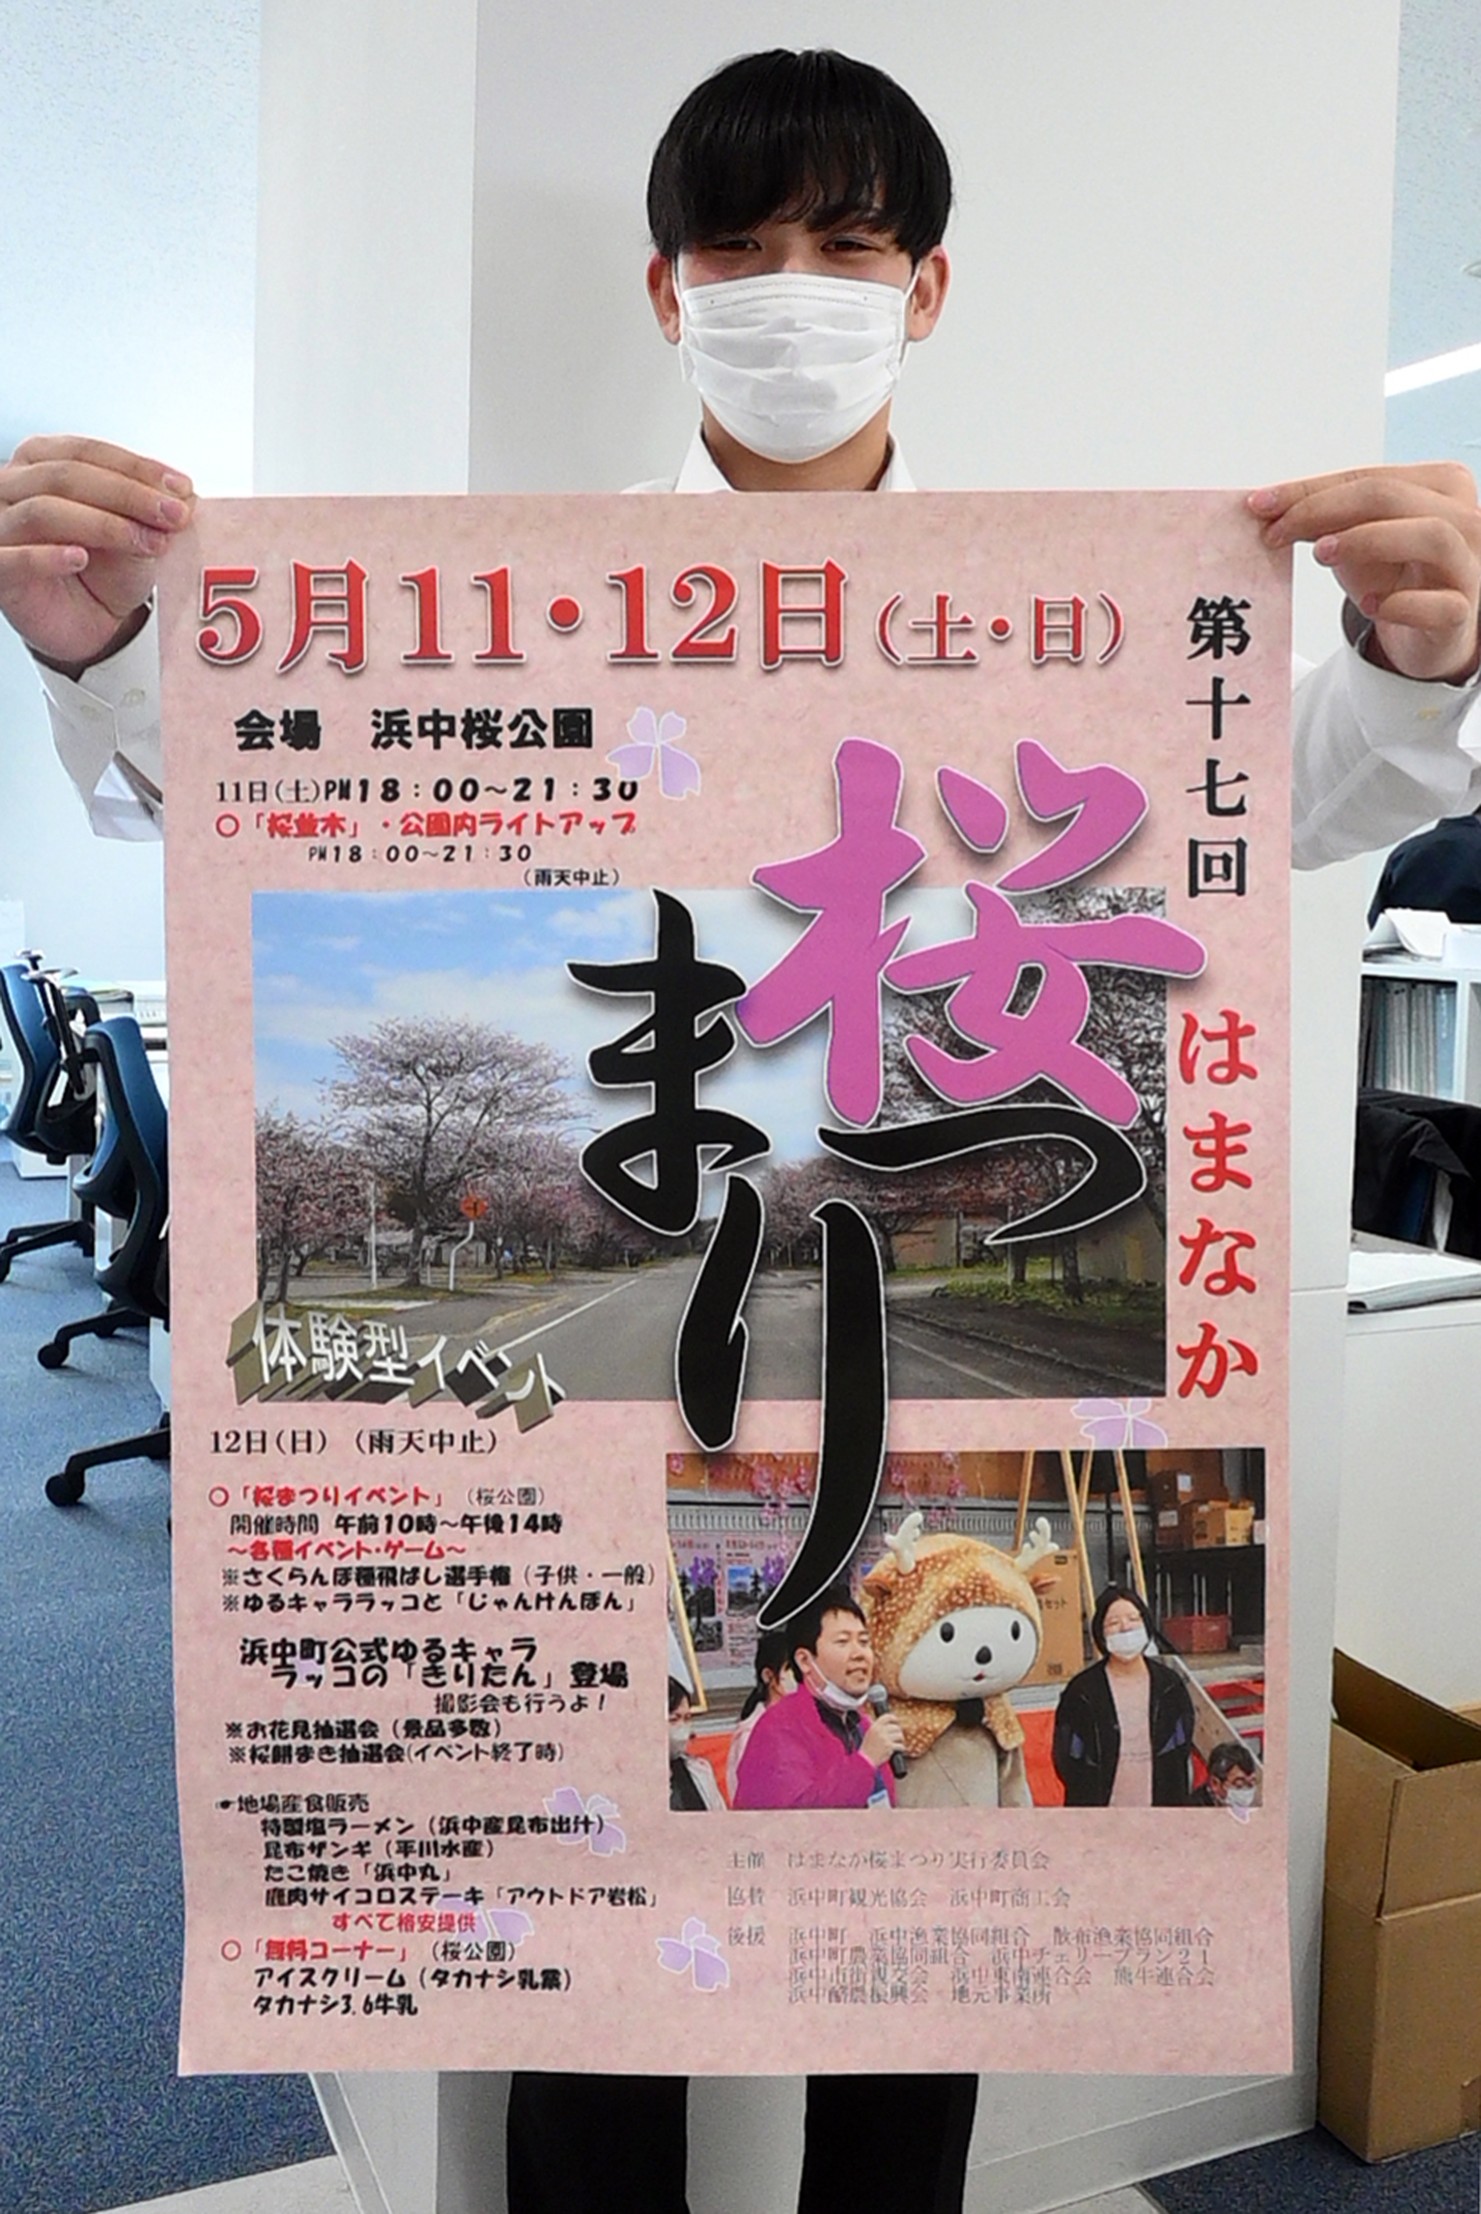 5月11・12日（土・日）
第十七回 はまなか
桜まつり
会場 浜中桜公園
11日（土）PM18：00～21：30
〇「桜並木」・公園内ライトアップ
PM18：00～21：30
（雨天中止）
体験型イベント
12日（日）（雨天中止）
〇「桜まつりイベント」（桜公園）
開催時間 午前10時～午後14時
～各種イベント・ゲーム～
※さくらんぼ種飛ばし選手権（子供・一般）
※ゆるキャララッコと「じゃんけんぽん」
浜中町公式ゆるキャラ
ラッコの「きりたん」登場
撮影会も行うよ！
※お花見抽選会（景品多数）
※桜餅まき抽選会（イベント終了時）
地場産食販売
特製塩ラーメン（浜中産昆布出汁）
昆布ザンギ（平川水産）
たこ焼き「浜中丸」
鹿肉サイコロステーキ「アウトドア岩松」
すべて格安提供
〇「無料コーナー」（桜公園）
アイスクリーム（タカナシ乳業）
タカナシ3.6牛乳
主催 はまなか桜まつり実行委員会
協賛 浜中町観光協会 浜中町商工会
後援 浜中町 浜中漁業協同組合 散布漁業協同組合
浜中町農業協同組合 浜中チェリープラン21
浜中市街親交会 浜中東南連合会 熊牛連合会
浜中酪農振興会 地元事業所